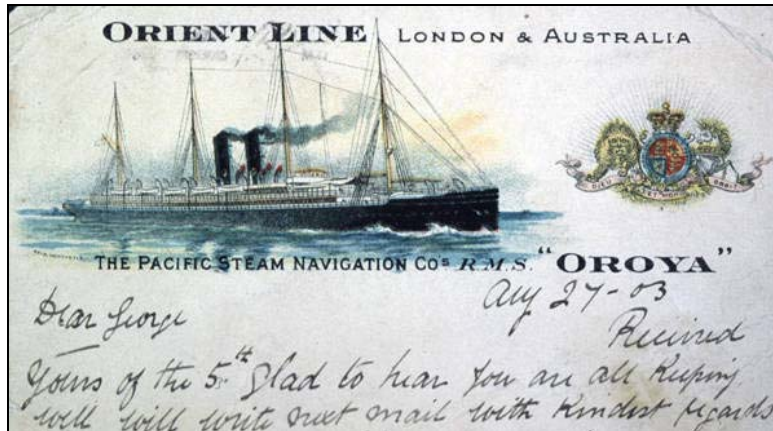 ORIENT LINE LONDON & AUSTRALIA
DIEU ET MON DROIT
THE PACIFIC STEAM NAVIGATION COS R.M.S. "OROYA"
Aug 27-03
Dear George
Received
Yours of the 5th Glad to hear you are all keeping
well will write next mail with kindest regards